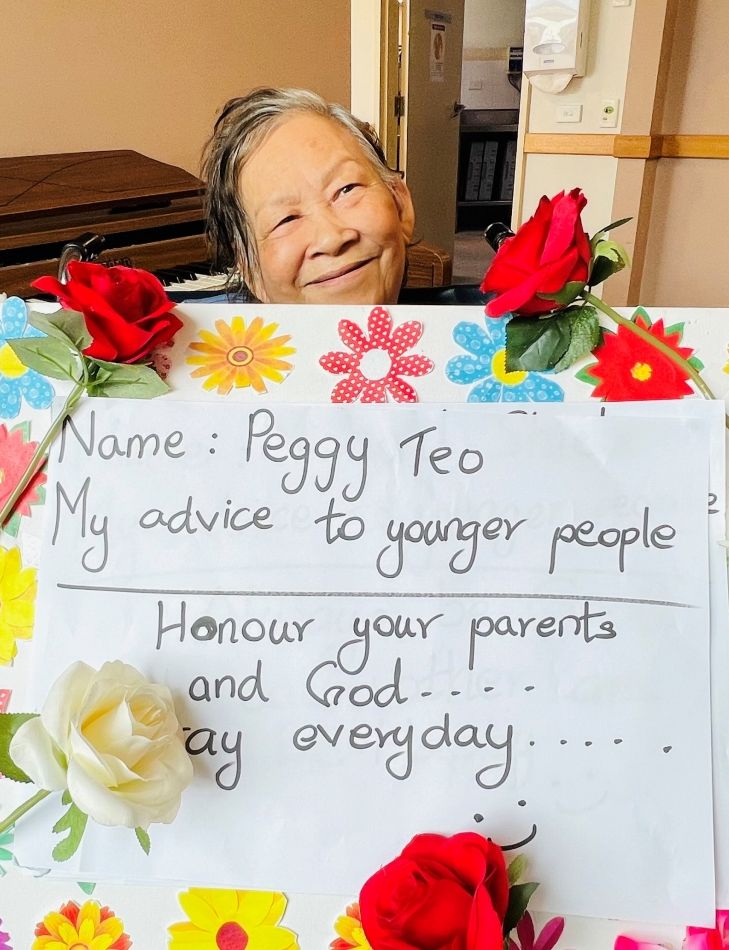 Name : Peggy Teo
My advice to younger people
Honour your parents
and God.....
everyday..... .
:)